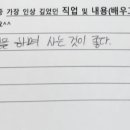 중 가장 인상 깊었던 직업 및 내용(배우고
^^
하며 사는 것이 좋다.